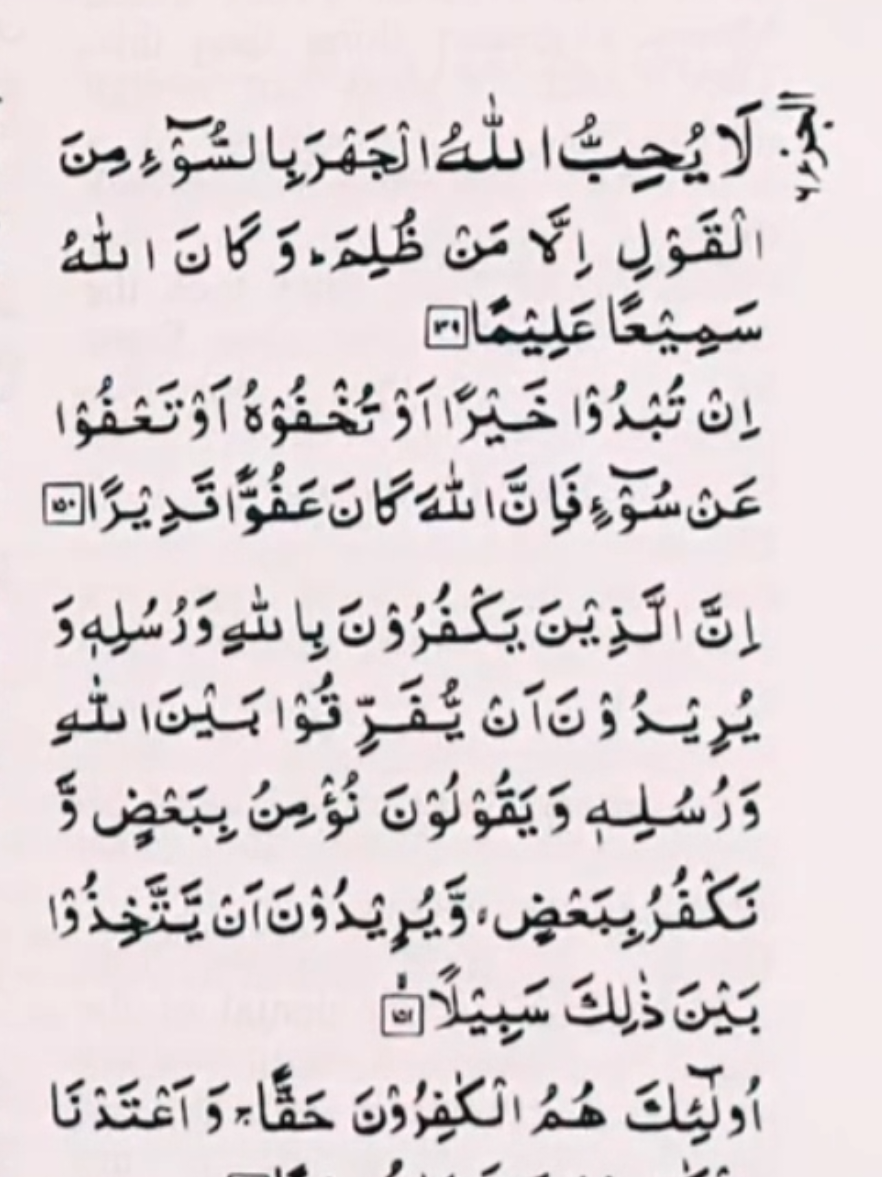 الجزء ٦
لَا یُحِبُّ اللّٰہُ الْجَہْرَ بِالسُّوْٓءِ مِنَ
الْقَوْلِ اِلَّا مَنْ ظُلِمَ ؕ وَ کَانَ اللّٰہُ
سَمِیْعًا عَلِیْمًا ﴿۱۴۹﴾
اِنْ تُبْدُوْا خَیْرًا اَوْ تُخْفُوْہُ اَوْ تَعْفُوْا
عَنْ سُوْٓءٍ فَاِنَّ اللّٰہَ کَانَ عَفُوًّا قَدِیْرًا ﴿۱۵۰﴾
اِنَّ الَّذِیْنَ یَکْفُرُوْنَ بِاللّٰہِ وَرُسُلِہٖ وَ
یُرِیْدُوْنَ اَنْ یُّفَرِّقُوْا بَیْنَ اللّٰہِ
وَرُسُلِہٖ وَ یَقُوْلُوْنَ نُؤْمِنُ بِبَعْضٍ وَّ
نَکْفُرُ بِبَعْضٍ ۙ وَّ یُرِیْدُوْنَ اَنْ یَّتَّخِذُوْا
بَیْنَ ذٰلِکَ سَبِیْلًا ﴿۱۵۱﴾ۙ
اُولٰٓئِکَ ہُمُ الْکٰفِرُوْنَ حَقًّا ۚ وَ اَعْتَدْنَا